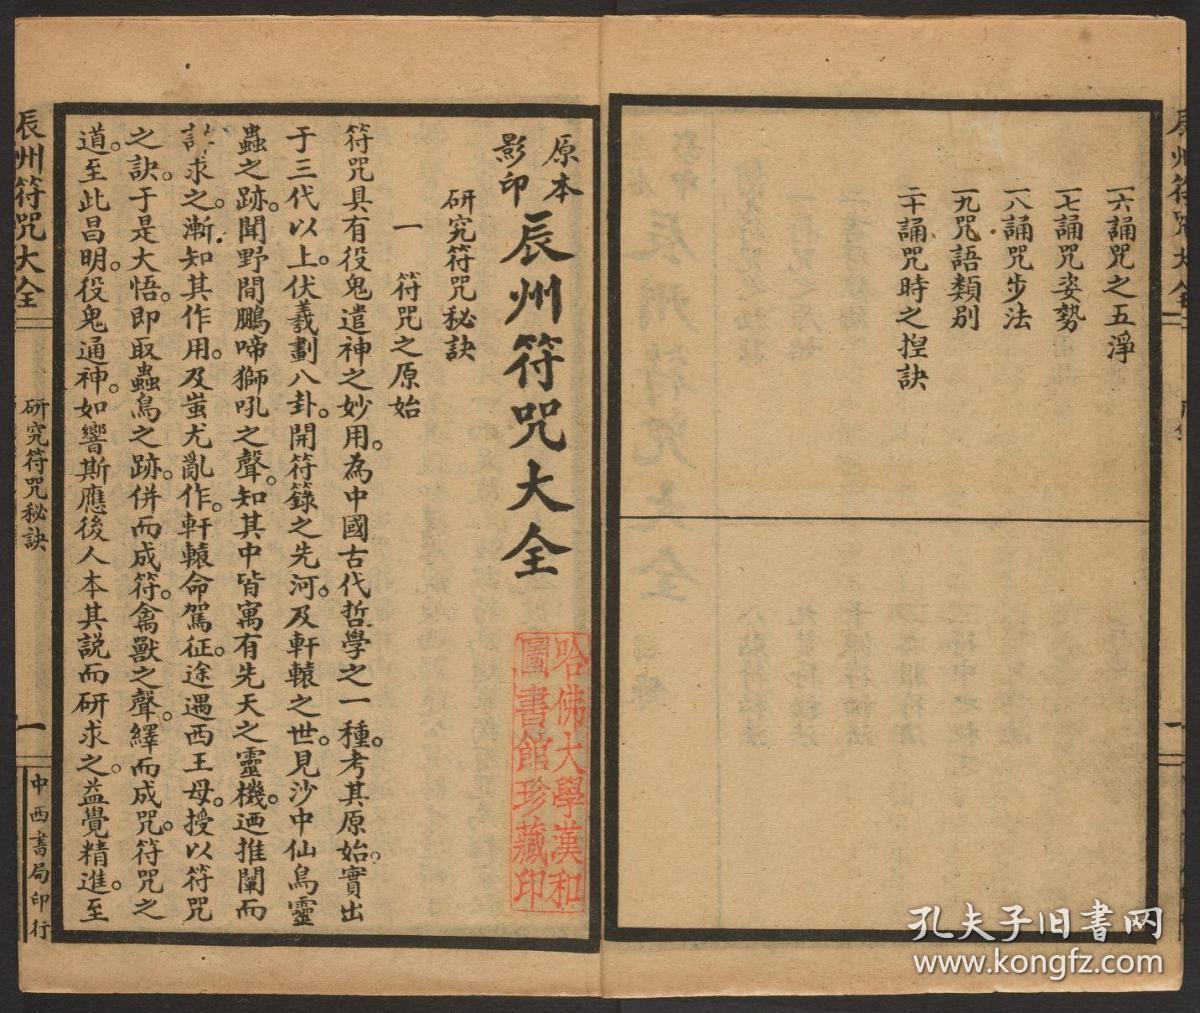 一六誦咒之五淨
一七誦咒姿勢
一八誦咒步法
一九咒語類別
二十誦咒時之捏訣
原本
影印
辰州符咒大全
研究符咒秘訣
一 符咒之原始
符咒具有役鬼遣神之妙用。為中國古代哲學之一種。考其原始。實出
于三代以上。伏羲劃八卦。開符籙之先河。及軒轅之世。見沙中仙鳥靈
蟲之跡。聞野間鵬啼獅吼之聲。知其中皆寓有先天之靈機。迺推闡而
求之。漸知其作用。及蚩尤亂作。軒轅命駕征。途遇西王母。授以符咒
之訣。于是大悟。即取蟲鳥之跡。併而成符。禽獸之聲。繹而成咒。符咒之
道。至此昌明。役鬼通神。如響斯應。後人本其說而研求之。益覺精進。至
哈佛大學漢和
圖書館珍藏印
辰州符咒大全
研究符咒秘訣
一
中西書局印行
孔夫子旧书网
www.kongfz.com